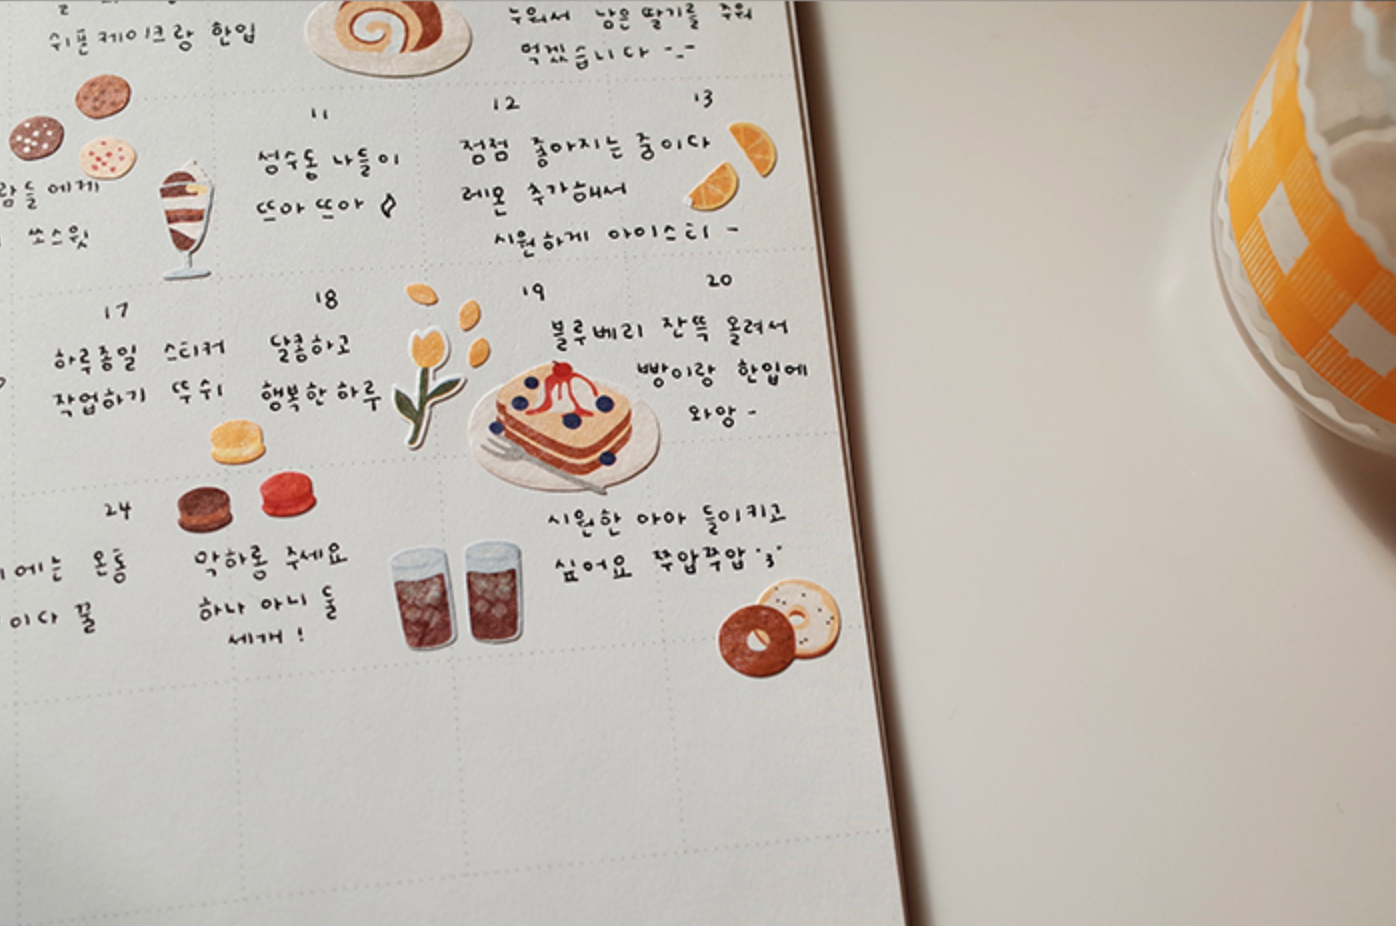 쉬폰케이크랑 한입
누워서 남은 딸기를 주워
먹겠습니다 -_-
람들에게
쏘스윗
11
성수동 나들이
뜨아 뜨아
12
점점 좋아지는 중이다
레몬 추가해서
시원하게 아이스티 -
13
17
하루종일 스티커
작업하기 뚜쉬
18
달콤하고
행복한 하루
19
20
블루베리 잔뜩 올려서
빵이랑 한입에
와앙 -
24
에는 온통
이다 꿀
막하롱 주세요
하나 아니 둘
세개 !
시원한 아아 들이키고
싶어요 쭈압쭈압